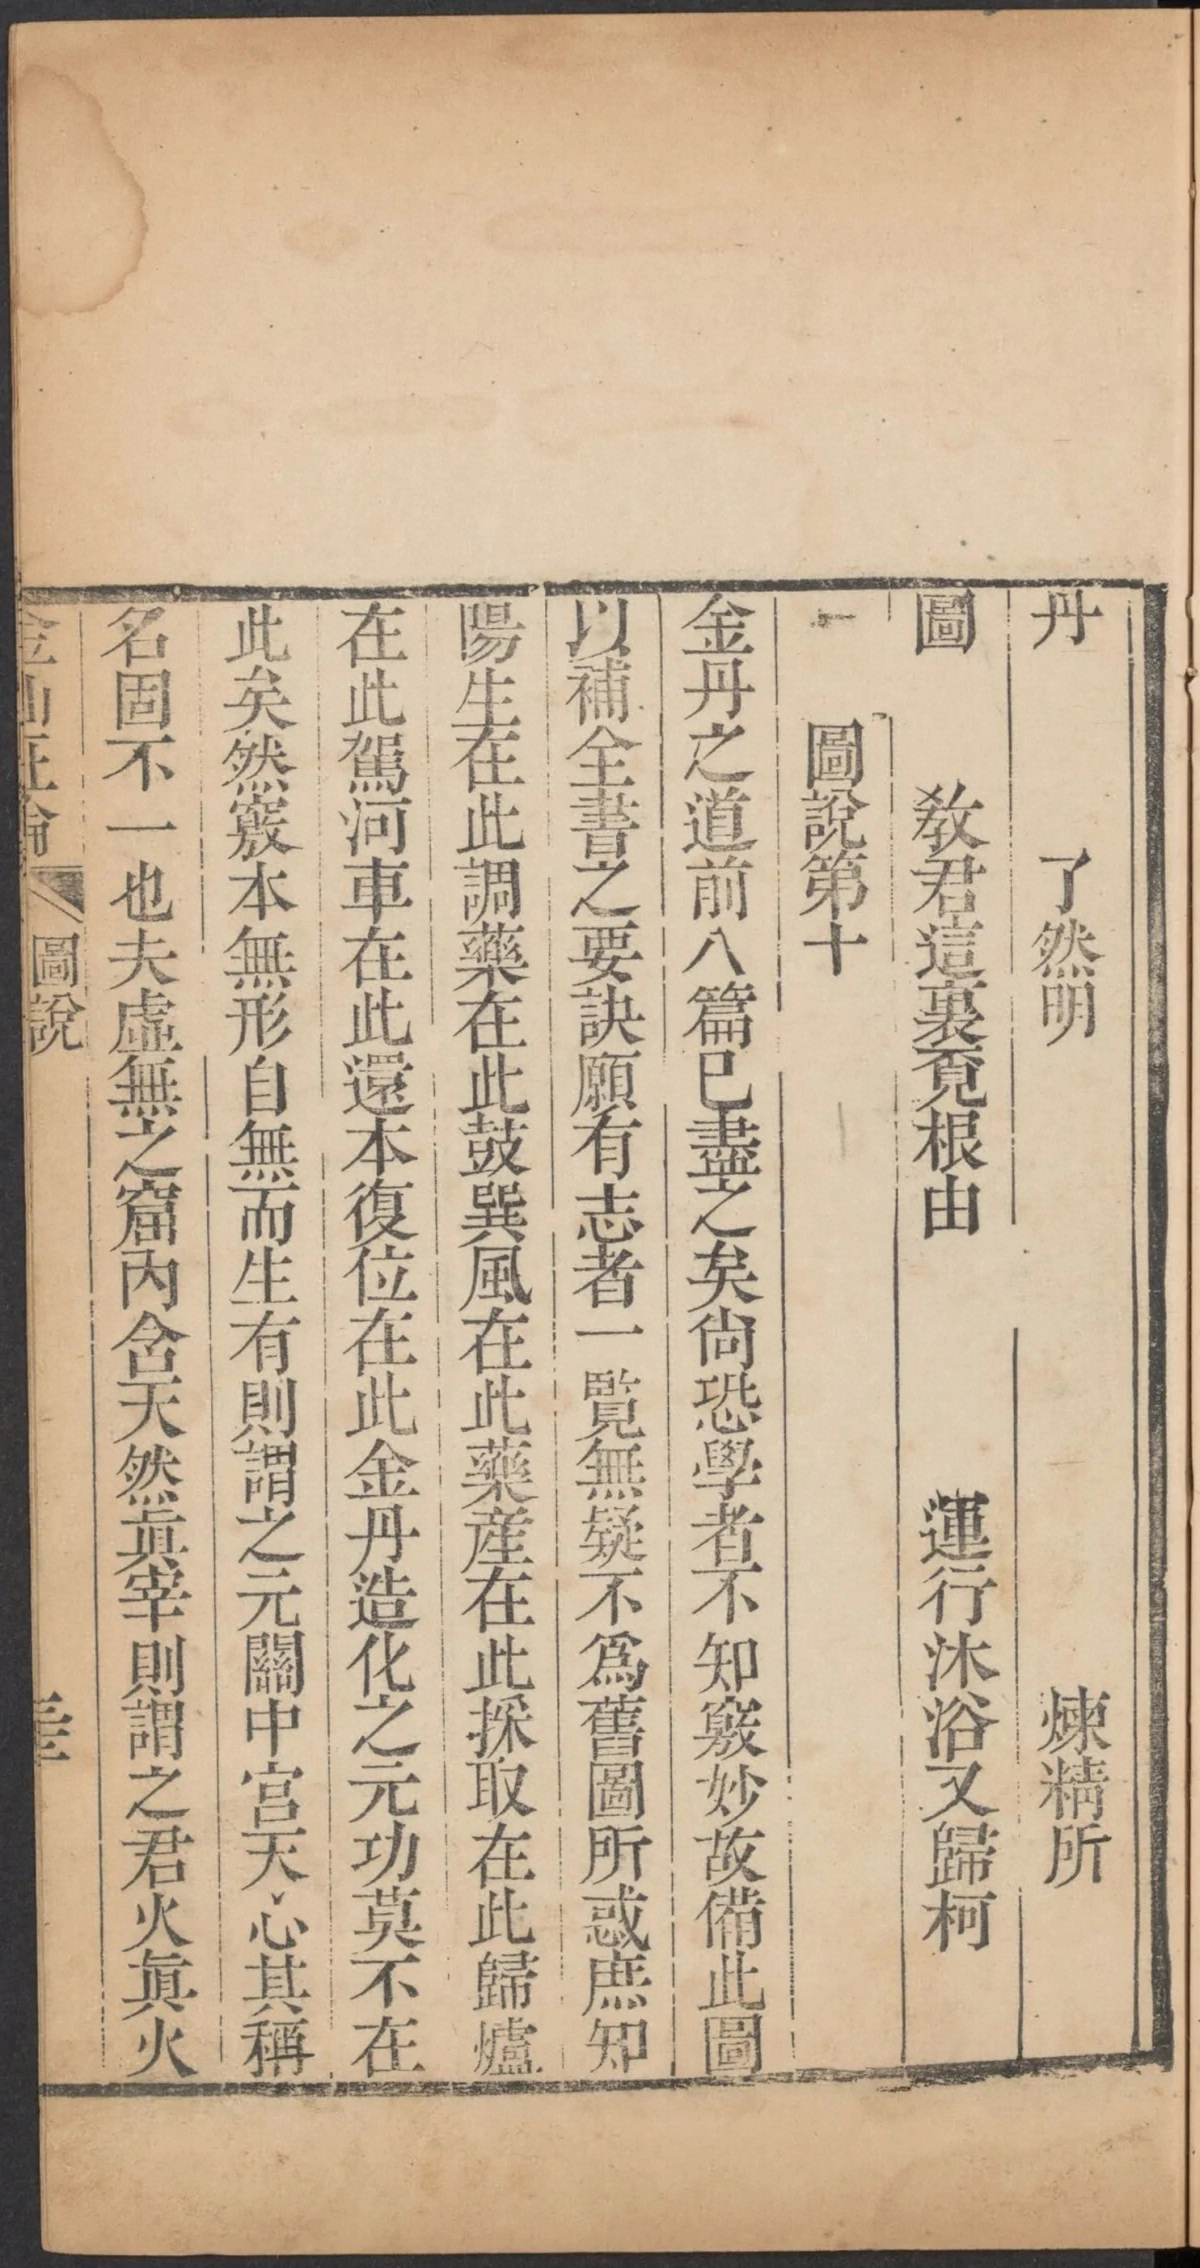 丹 了然明 煉精所
圖 教君這裏覓根由 運行沐浴又歸柯
一 圖說第十
金丹之道前八篇已盡之矣尙恐學者不知竅妙故備此圖
以補全書之要訣願有志者一覧無疑不爲舊圖所惑庶知
陽生在此調藥在此鼓巽風在此藥產在此採取在此歸爐
在此駕河車在此還本復位在此金丹造化之元功莫不在
此矣然竅本無形自無而生有則謂之元關中宮天心其稱
名固不一也夫虛無之窟內含天然眞宰則謂之君火眞火
金仙正論 圖說